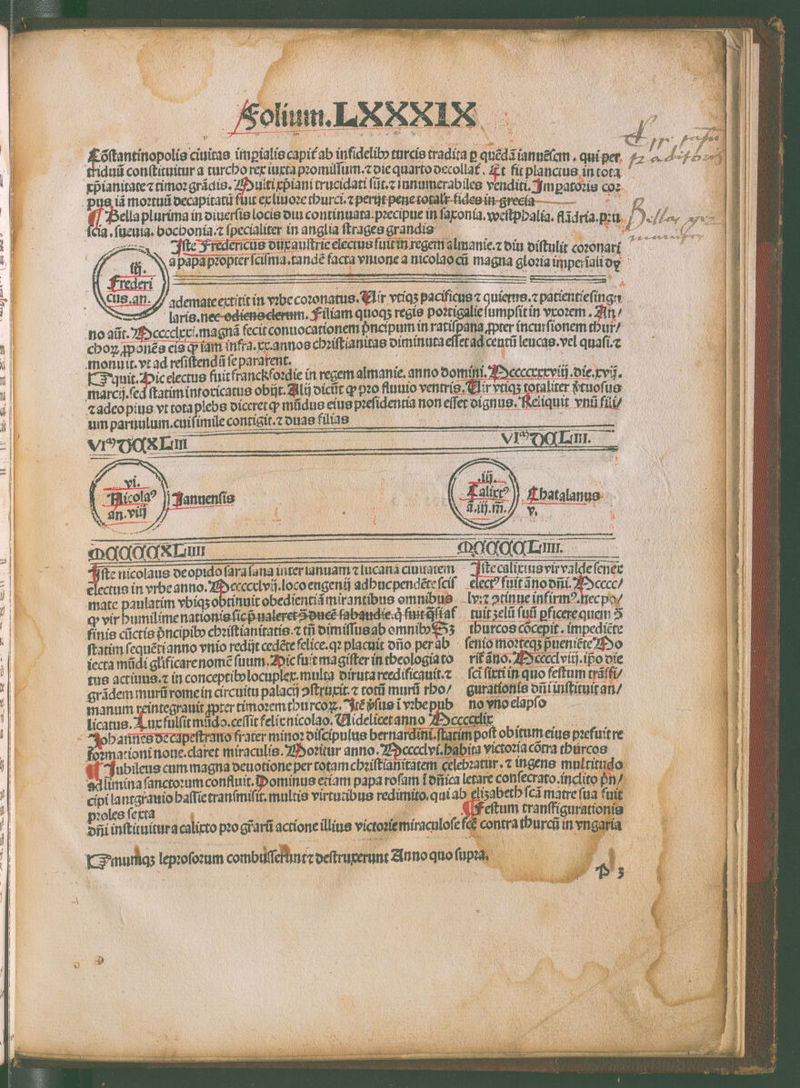 Folium.LXXXIX
Cõstantinopolis ciuitas imꝑialis capit̃ ab infidelibꝰ turcis tradita ꝑ quẽdã ianuẽsem. qui per
triduũ constituitur a turcho rex iuxta promissum.⁊ die quarto decollat̃. Et fit planctus in tota
xp̃ianitate ⁊ timor grãdis. Multi xp̃iani trucidati sũt.⁊ innumerabiles venditi. Impatoris cor
pus iã mortuũ decapitatũ fuit ex liuore thurci.⁊ perijt pene totalr̃ fides in grecia
¶ Bella plurima in diuersis locis diu continuata. precipue in saxonia. westphalia. flãdria. pru
scia. sueuia. bochonia.⁊ specialiter in anglia strages grandis
Iste Fredericus dux austrie electus fuit in regem almanie.⁊ diu distulit coronari
a papa propter scisma. tandẽ facta vnione a nicolao cũ magna gloria imperiali dy
iij.
Frederi
cus. an.
ademate extitit in vrbe coronatus. Vir vtiqꝫ pacificus ⁊ quietus.⁊ patientie singu
laris. nec odiens clerum. Filiam quoqꝫ regis portigalie sumpsit in vxorem. An/
no aũt. Mcccclxxi. magnã fecit conuocationem p̃ncipum in ratispana ꝓpter incursionem thur/
choꝝ ꝓponẽs eis ꝙ iam infra. xx. annos christianitas diminuta esset ad centũ leucas. vel quasi.⁊
monuit. vt ad resistendũ se pararent.
quit. Hic electus fuit franckfordie in regem almanie. anno domini. Mccccxxxviij. die. xvij.
marcij. sed statim intoxicatus obijt. Alij dicũt ꝙ pro fluuio ventris. Vir vtiqꝫ totaliter v̓tuosus
⁊ adeo pius vt tota plebs diceret ꝙ mũdus eius presidentia non esset dignus. Reliquit vnũ fili/
um paruulum. cui simile contigit.⁊ duas filias
vi.
Nicolaꝰ
an. viij
Januensis
iij.
Calixtꝰ
ã. iij. m̃.
Chatalanus
v.
Iste nicolaus de opido sarasana inter ianuam ⁊ lucana ciuitatem
electus in vrbe anno. Mccccxlvij. loco eugenij adhuc pendẽte scis
mate paulatim vbiqꝫ obtinuit obedientiã mirantibus omnibus
finis cũctis p̃ncipibꝰ christianitatis.⁊ tñ dimissus ab omnibꝰ Sꝫ
statim sequẽti anno vnio redijt cedẽte felice. qꝛ placuit dño per ab
iecta mũdi gl̃ificare nomẽ suum. Hic fuit magister in theologia to
tus actiuus.⁊ in conceptibꝰ locuplex. multa diruta reedificauit.⁊
grãdem murũ rome in circuitu palacij ↄstruxit.⁊ totũ murũ rho/
manum reintegrauit ꝓpter timorem thurcoꝝ. Itẽ v̓sus ĩ vrbe pub
licatus. Lux fulsit mũdo. cessit felix nicolao. Videlicet anno Mccccxlix
Iste calixtus vir valde senex
electꝰ fuit ãno dñi. Mcccc/
lv:⁊ ↄtinue infirmꝰ. nec po/
tuit zelũ suũ ꝑficere quem ↄ̃
thurcos cõcepit. impediẽte
senio morteqꝫ p̃ueniẽte Mo
rit̃ ãno. Mcccclviij. ip̃o die
sc̃i sixti in quo festum trãsfi/
gurationis dñi instituit an/
no vno elapso
Johannes de capestrano frater minor discipulus bernardini. statim post obitum eius prefuit re
formationi noue. claret miraculis. Moritur anno. Mcccclvi. habita victoria cõtra thurcos
¶ Jubileus cum magna deuotione per totam christianitatem celebratur.⁊ ingens multitudo
ad limina sanctorum confluit. Dominus etiam papa rosam ĩ dñica letare consecrato. inclito p̃n/
cipi lantgrauio hassie transmisit. multis virtutibus redimito. qui ab elizabeth sc̃ã matre sua fuit
proles sexta
¶ Festum transfigurationis
dñi instituitur a calixto pro gr̃arũ actione illius victorie miraculose fc̃ẽ contra thurcũ in vngaria
mumqꝫ leprosorum combusserunt ⁊ destruxerunt Anno quo supra.